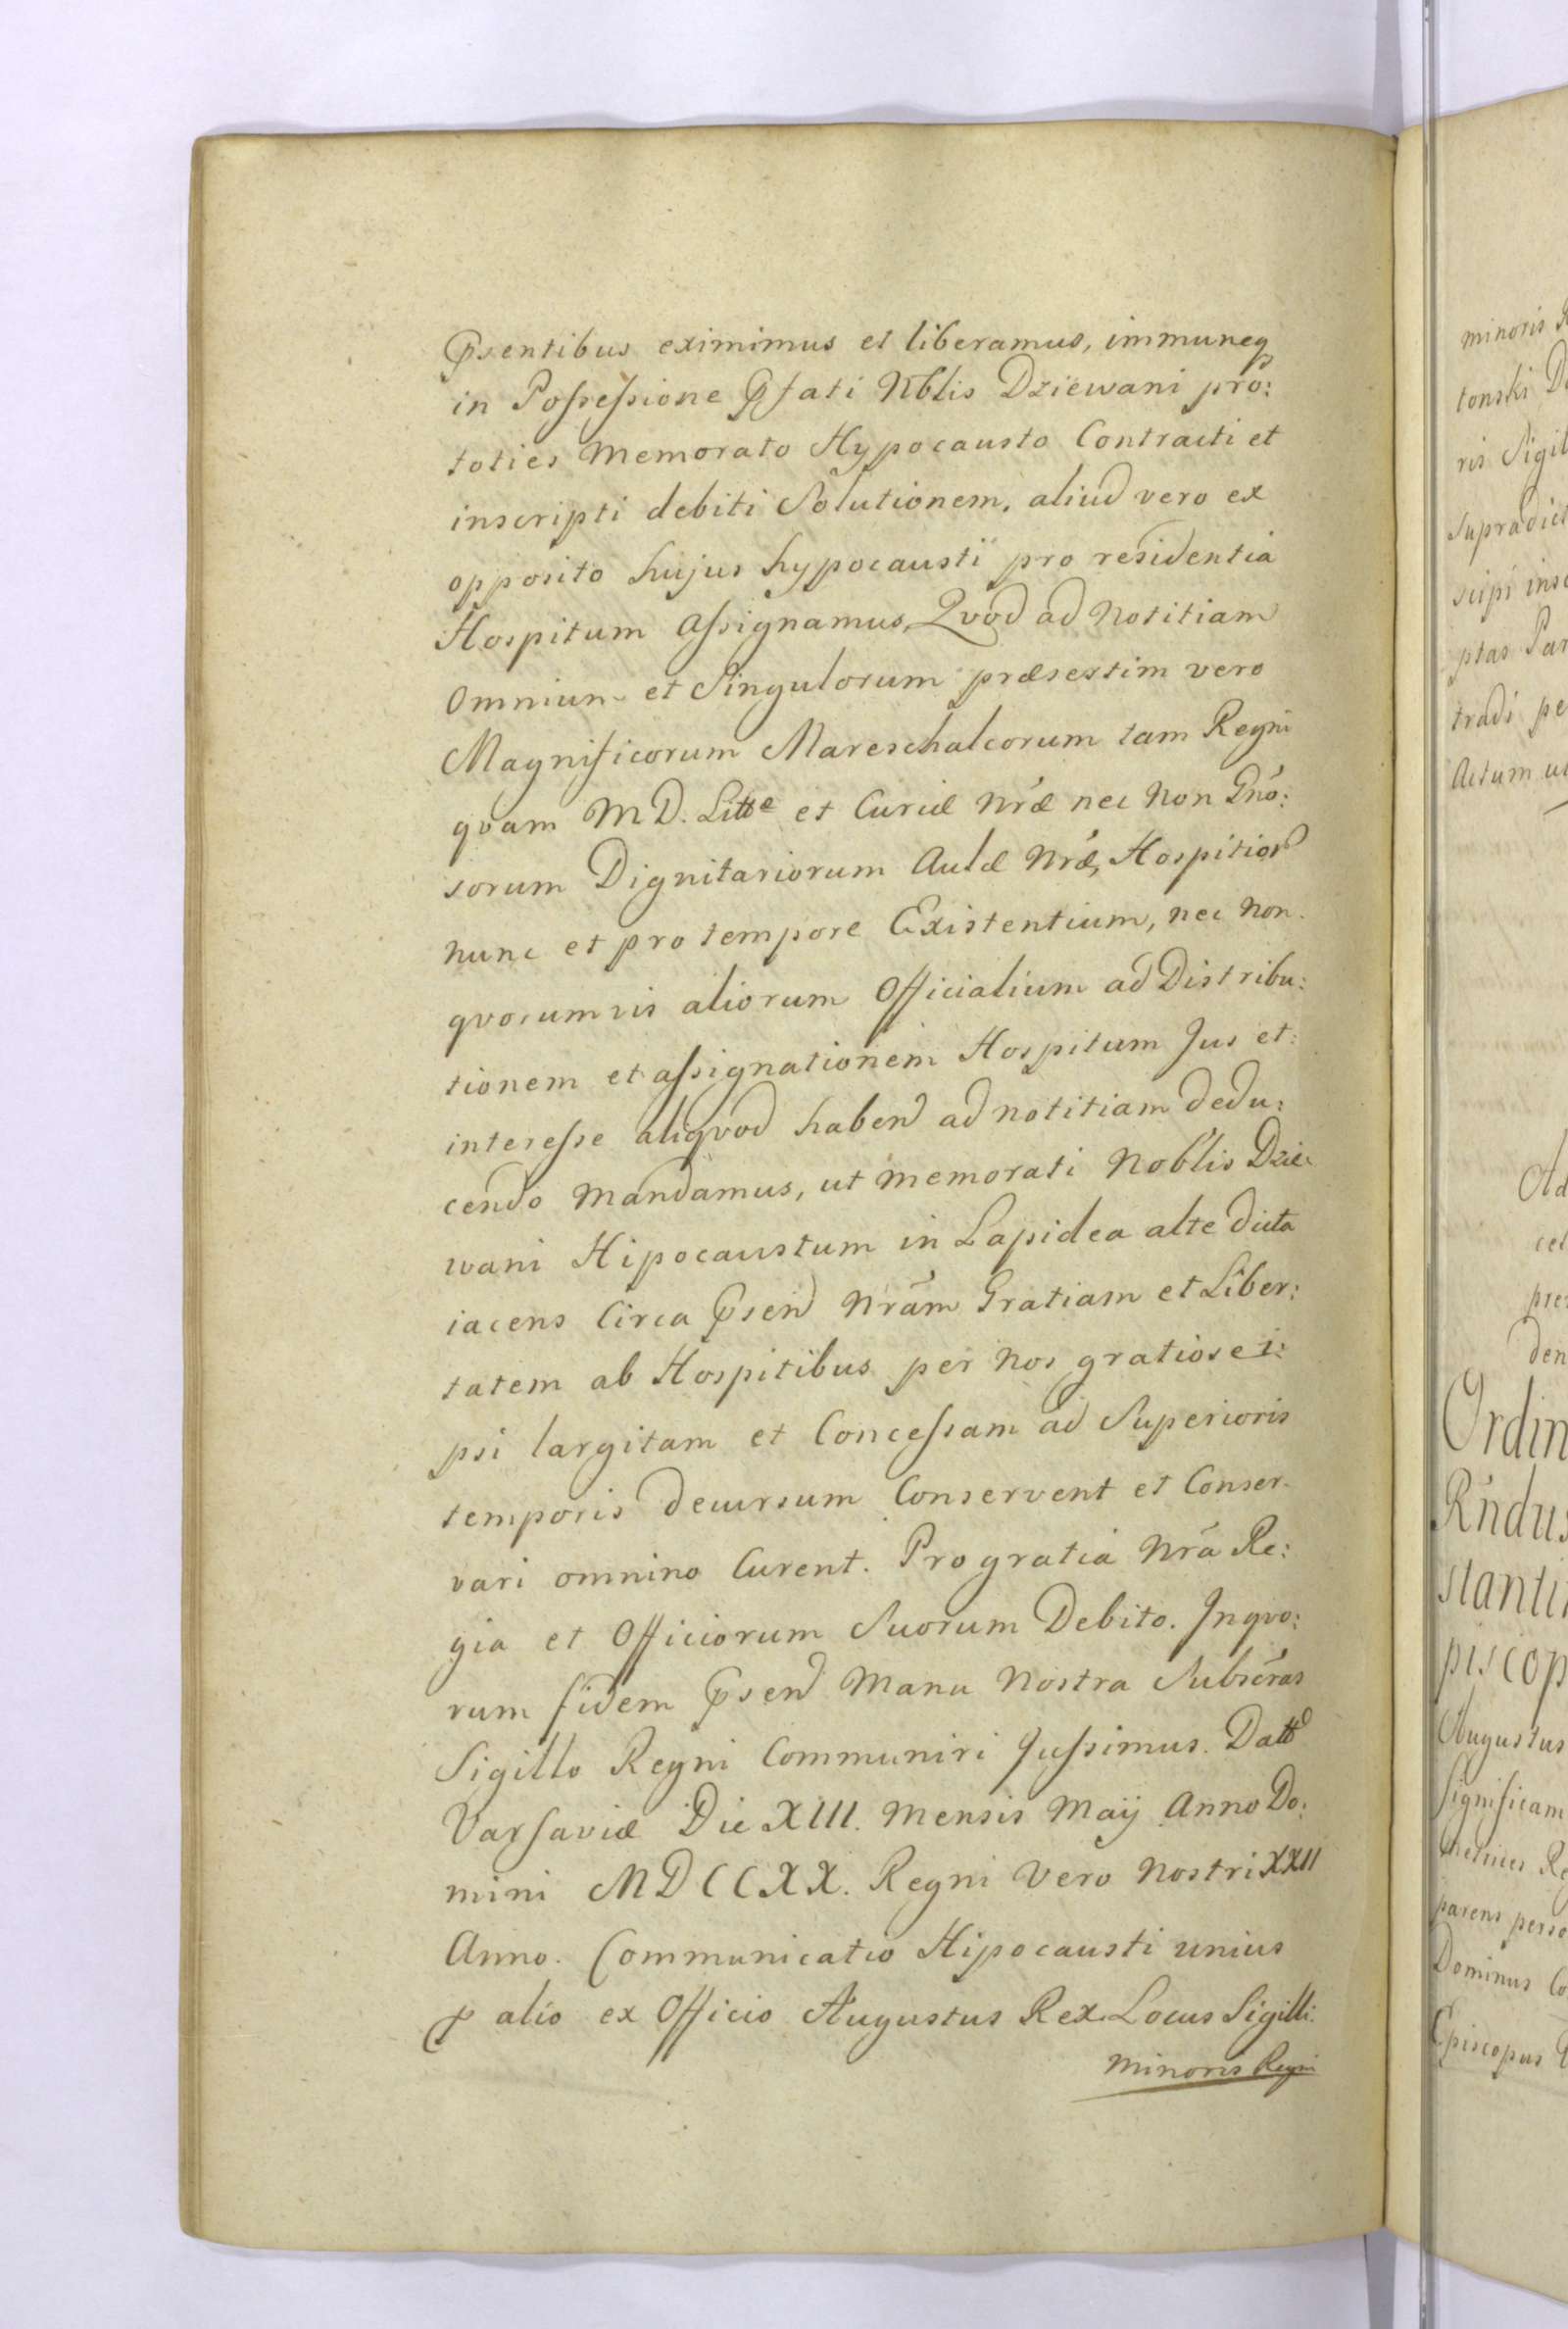 Psentibus eximimus et liberamus, immuneq
in Possessione Pfati Nblis Dziewani pro:
toties Memorato Hypocausto Contracti et
inscripti debiti Solutionem, aliud vero ex
opposito hujus hypocausti pro residentia
Hospitum assignamus, Qvod ad Notitiam
Omnium et Singulorum præsertim vero
Magnificorum Mareschalcorum tam Regni
qvam M D. Litte et Curiæ Nræ nec Non Gno:
sorum Dignitariorum Aulæ Nræ, Hospitior
nunc et pro tempore Existentium, nec Non
qvorumvis aliorum Officialium ad Distribu:
tionem et assignationem Hospitum Jus et:
interesse aliqvod habend ad notitiam dedu:
cendo Mandamus, ut Memorati Noblis Dzie
wani Hipocaustum in Lapidea alte dicta
iacens Circa Psend Nram Gratiam et Liber:
tatem ab Hospitibus per Nos gratiose i:
psi largitam et Concessam ad Superioris
temporis decursum Conservent et Conser-
vari omnino Curent. Pro gratia Nra Re:
gia et Officiorum Suorum Debito. Jnqvo:
rum fidem Psend Manu Nostra Subscras
Sigillo Regni Communiri Jussimus. Datt
Varsaviæ Die XIII. Mensis Maij Anno Do:
mini MDCCXX. Regni Vero Nostri XXII
Anno. Communicatio Hipocausti unius
P alio ex Officio Augustus Rex Locus Sigilli.
Minoris Regni
minoris
tonski
ris Sigil
supradict
scipi insc
ptas Par
tradi pe
Actum ut
Ad
cel
pre
den
Ordin
Rndus
stanti
piscop
Augustus
Significam
parens perso
Dominus Co
Episcopus